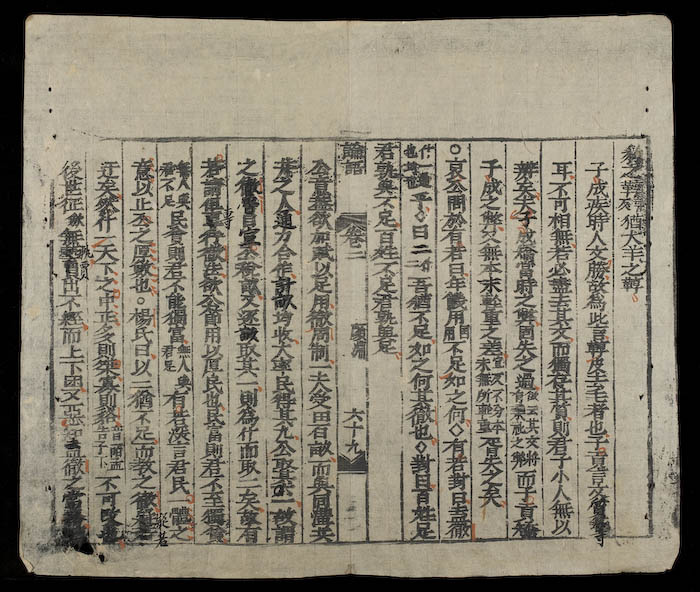 豹之鞹猶犬羊之鞹
子成疾時人文勝故為此言鞹皮去毛者也子貢言文質等
耳不可相無若必盡去其文而獨存其質則君子小人無以
辨矣夫子成矯當時之弊固失之過而子貢矯
子成之弊又無本末輕重之差胥失之矣
○哀公問於有若曰年饑用國用不足如之何◇有若對曰盍徹
乎◇曰二吾猶不足如之何其徹也◇對曰百姓足
君孰與不足百姓不足君孰與足
論語 卷二 顏淵 六十九
公意蓋欲加賦以足用徹周制一夫受田百畝而與同溝共
井之人通力合作計畝均收大率民得其九公取其一故謂
之徹魯自宣公稅畝又逐畝取其一則為什而取二矣故有
若請但專行徹法欲公節用以厚民也民富則君不至獨貧
民貧則君不能獨富有若深言君民一體之
意以止公之厚斂也○楊氏曰以二猶不足而教之徹疑若
迂矣然什一天下之中正多則桀寡則貉不可改也
後世征斂無藝費出不經而上下困又惡知盍徹之當務